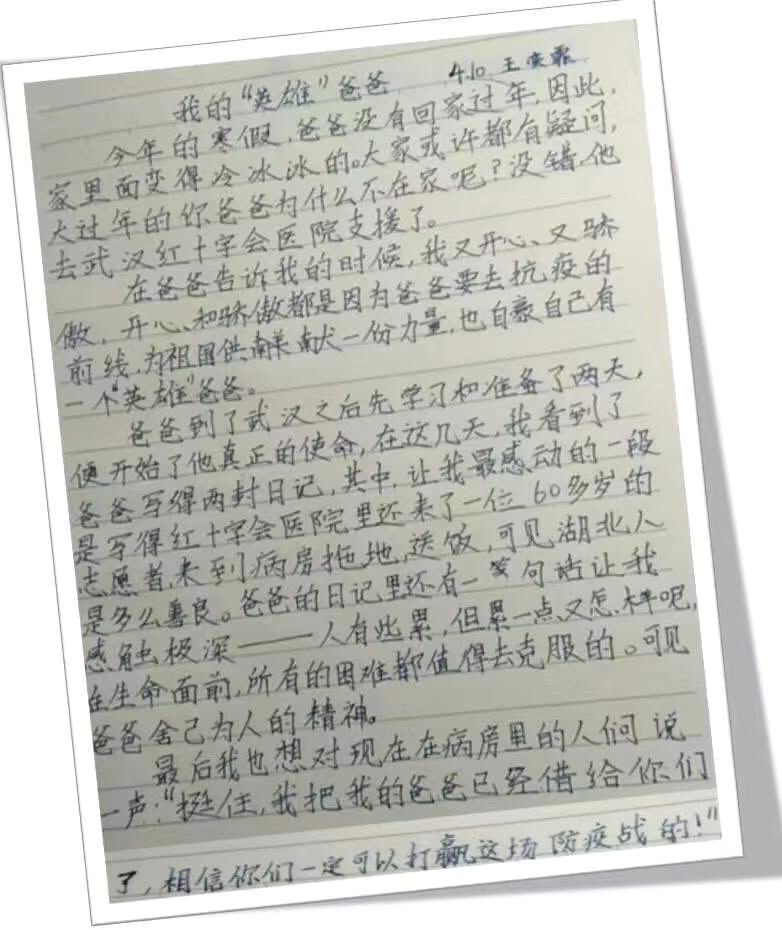 我的“英雄”爸爸 4.10 王奕霏
今年的寒假,爸爸没有回家过年,因此,
家里面变得冷冰冰的。大家或许都有疑问,
大过年的你爸爸为什么不在家呢?没错,他
去武汉红十字会医院支援了。
在爸爸告诉我的时候,我又开心、又骄
傲,开心、和骄傲都是因为爸爸要去抗疫的
前线,为祖国供献一份力量,也自豪自己有
一个“英雄”爸爸。
爸爸到了武汉之后先学习和准备了两天,
便开始了他真正的使命,在这几天,我看到了
爸爸写得两封日记,其中,让我最感动的一段
是写得红十字会医院里还来了一位60多岁的
志愿者,来到病房拖地,送饭,可见湖北人
是多么善良。爸爸的日记里还有一句话让我
感触极深——人有些累,但累一点又怎样呢,
在生命面前,所有的困难都值得去克服的。可见
爸爸舍己为人的精神。
最后我也想对现在在病房里的人们说
一声:“挺住,我把我的爸爸已经借给你们
了,相信你们一定可以打赢这场防疫战的!”